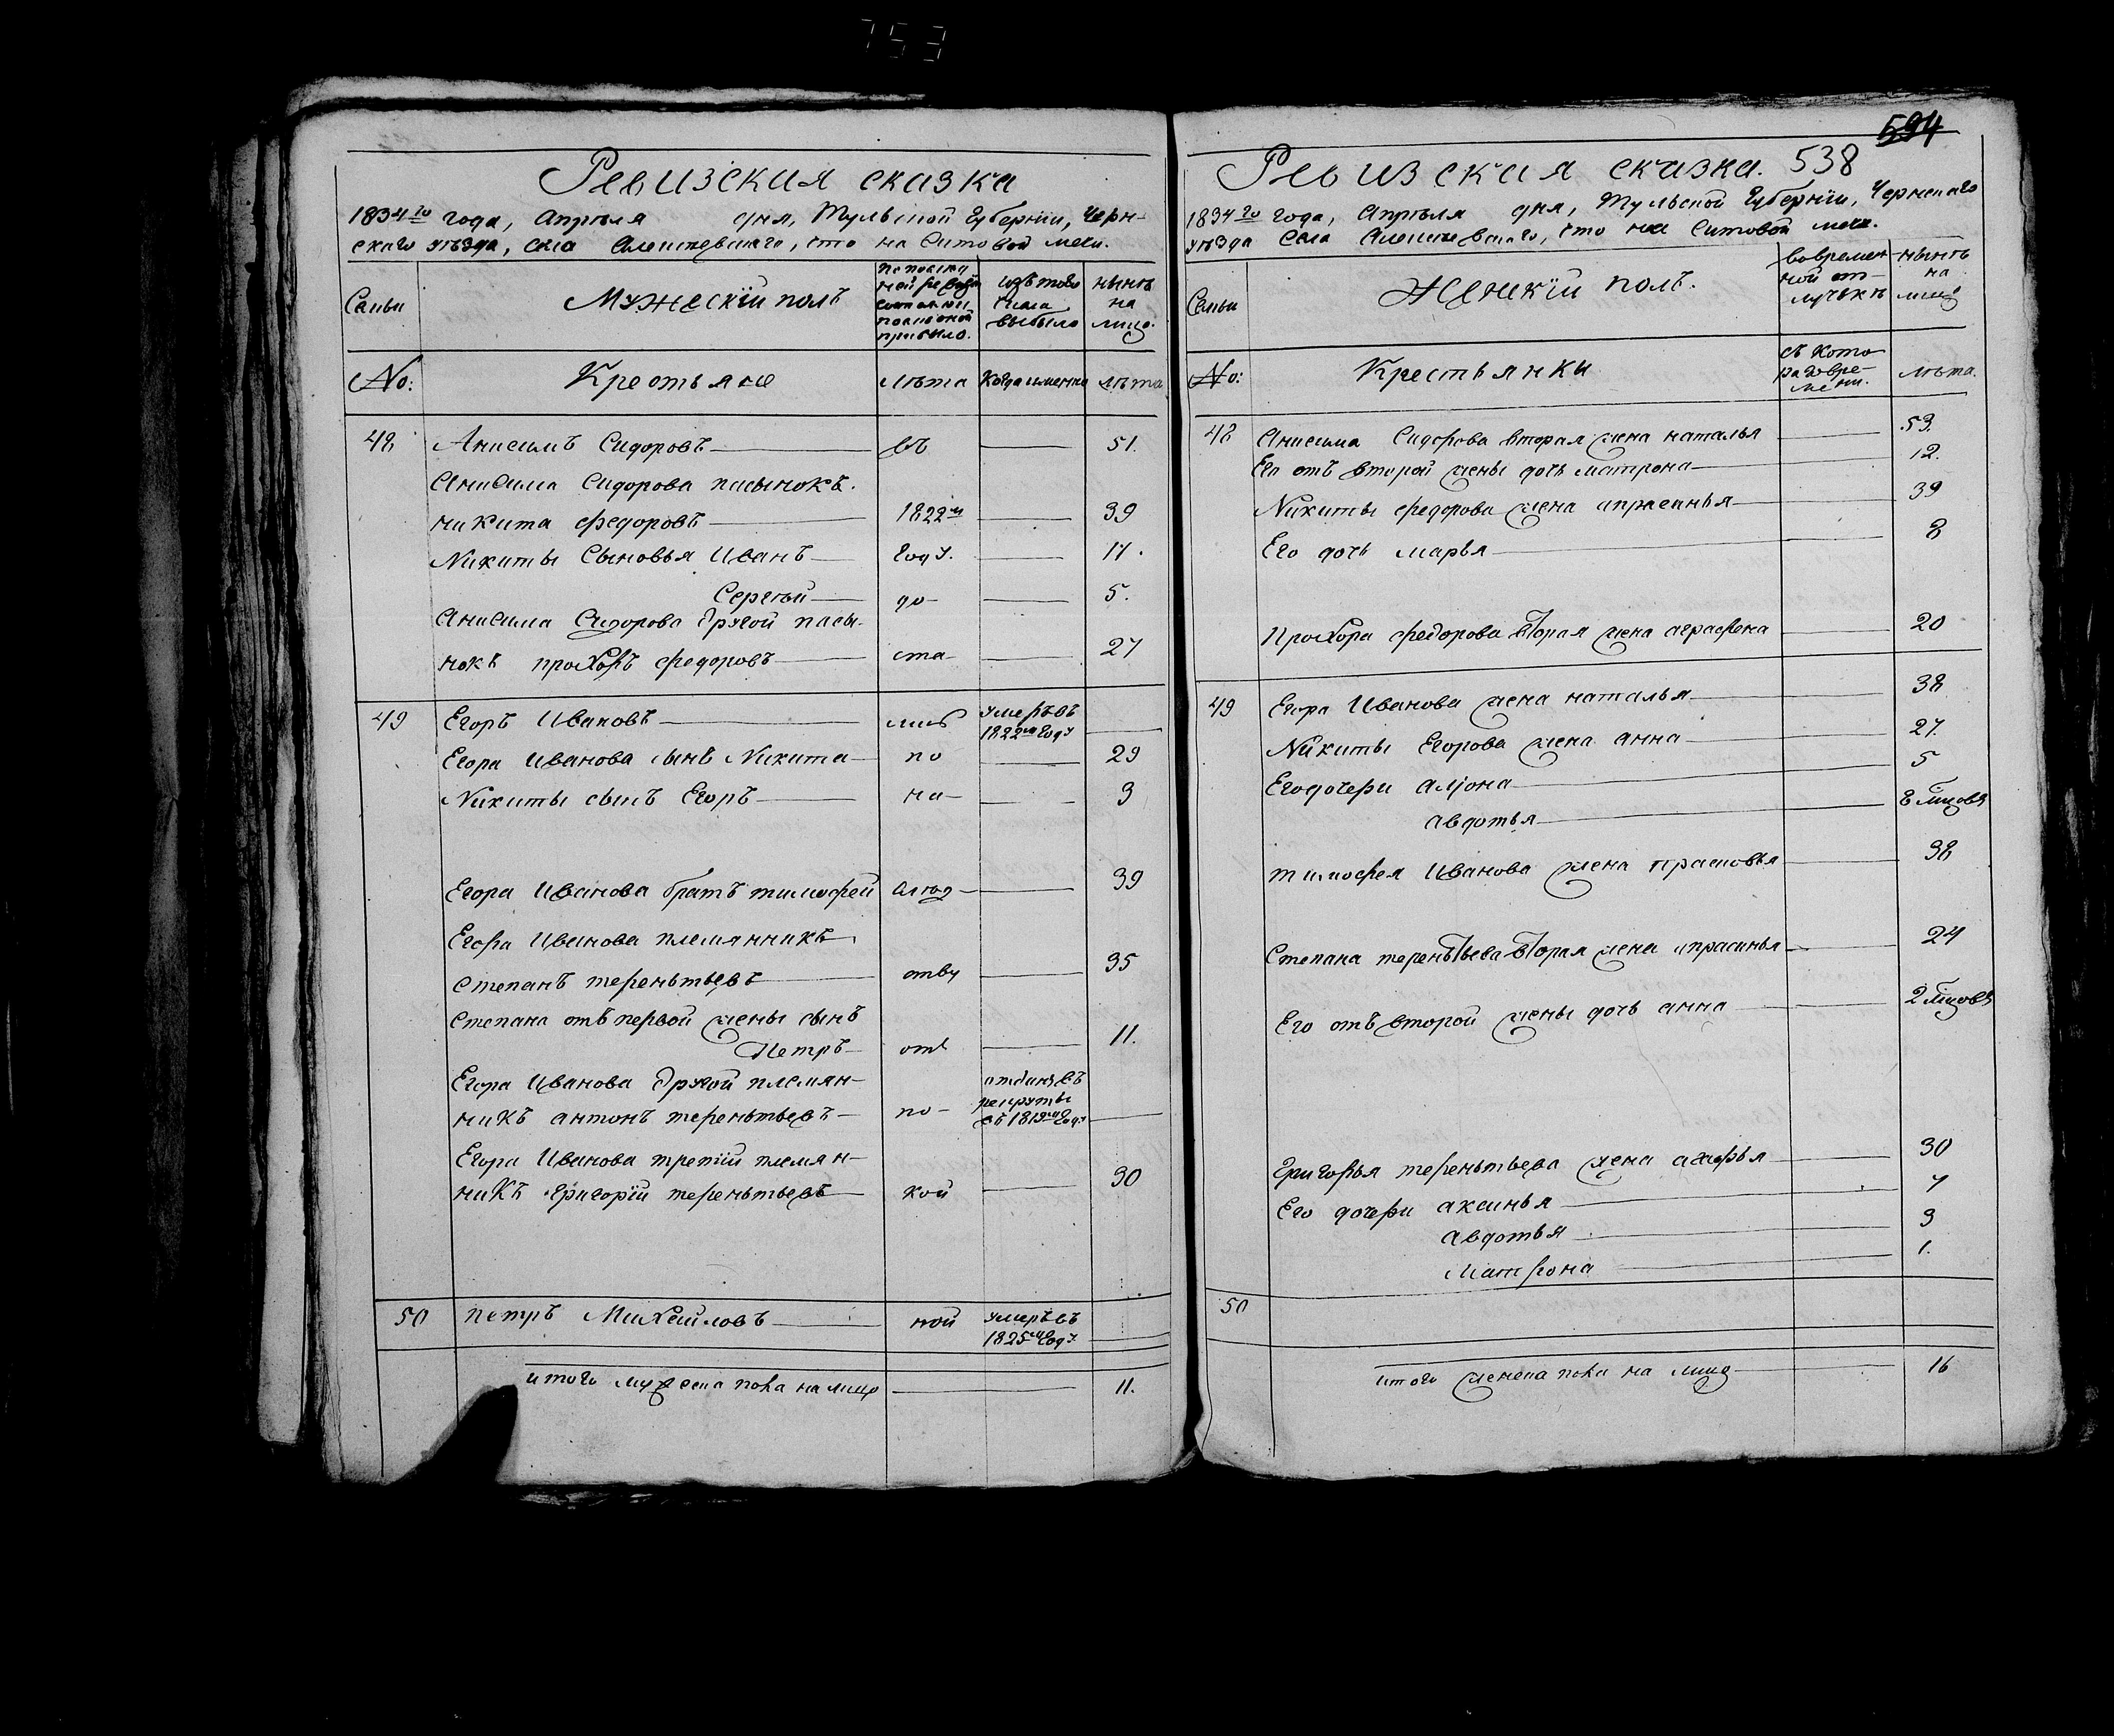 753
Ревизская сказка
1834го года, Апреля дня, Тульской Губернїи, Черн-
скаго уѣзда, села
что на Ситовой мечи.
Семьи
Мужескїй полъ
по послѣд
ней ревизїи
состояло и
после оной
прибыло.
изъ того
числа
выбыло
нынѣ
на
лицо.
No:
Крестьяне
лѣта
Когда именно
лѣта
48 Анисимъ Сидоровъ въ 51.
Анисима Сидорова пасынокъ.
никита федоровъ 1822м 39
Никиты Сыновья Иванъ году. 17.
Сергѣй до 5.
Анисима Сидорова другой пасы-
нокъ прохоръ федоровъ ста 27
49 Егоръ Ивановъ умеръ въ
1822м году
Егора Иванова сынъ Никита по 29
Никиты сынъ Егоръ на 3
Егора Иванова братъ тимофей 39
Егора Иванова племянникъ
степанъ тереньтьевъ 35
Степана отъ первой жены сынъ
Петръ 11.
Егора Иванова другой племян- отданъ въ
никъ антонъ тереньтьевъ по- рекруты
въ 1819м году
Егора Иванова третїй племян-
никъ Григорїй тереньтьевъ кой 30
50 петръ Михайловъ ной умеръ въ
1825м году
итого мужеска пола на лицо 11.
594
Ревизская сказка. 538
1834го года, Апреля дня, Тульской Губернїи, Чернскаго
уѣзда Села что на Ситовой мечи.
Семьи
Женскїй полъ.
во времен
ной от-
лучькѣ
нынѣ
на
лицо
No:
Крестьянки
съ кото
раго вре-
мени.
лѣта.
48 Анисима Сидорова вторая жена наталья 53.
Его отъ второй жены дочь матрона 12.
Никиты федорова жена апраксинья 39
Его дочь марья 8
Прохора федорова вторая жена аграфена 20
49 Егора Иванова жена наталья 38
Никиты Егорова жена анна 27.
Его дочери алїона 5
авдотья 8 мцовъ
тимофея Иванова жена прасковья 38
Степана тереньтьева вторая жена апрасинья 24
Его отъ второй жены дочь анна 2 мцовъ
Григорья тереньтьева жена 30
Его дочери аксинья 7
авдотья 3
Матрона 1.
50
итого женска пола на лицо 16